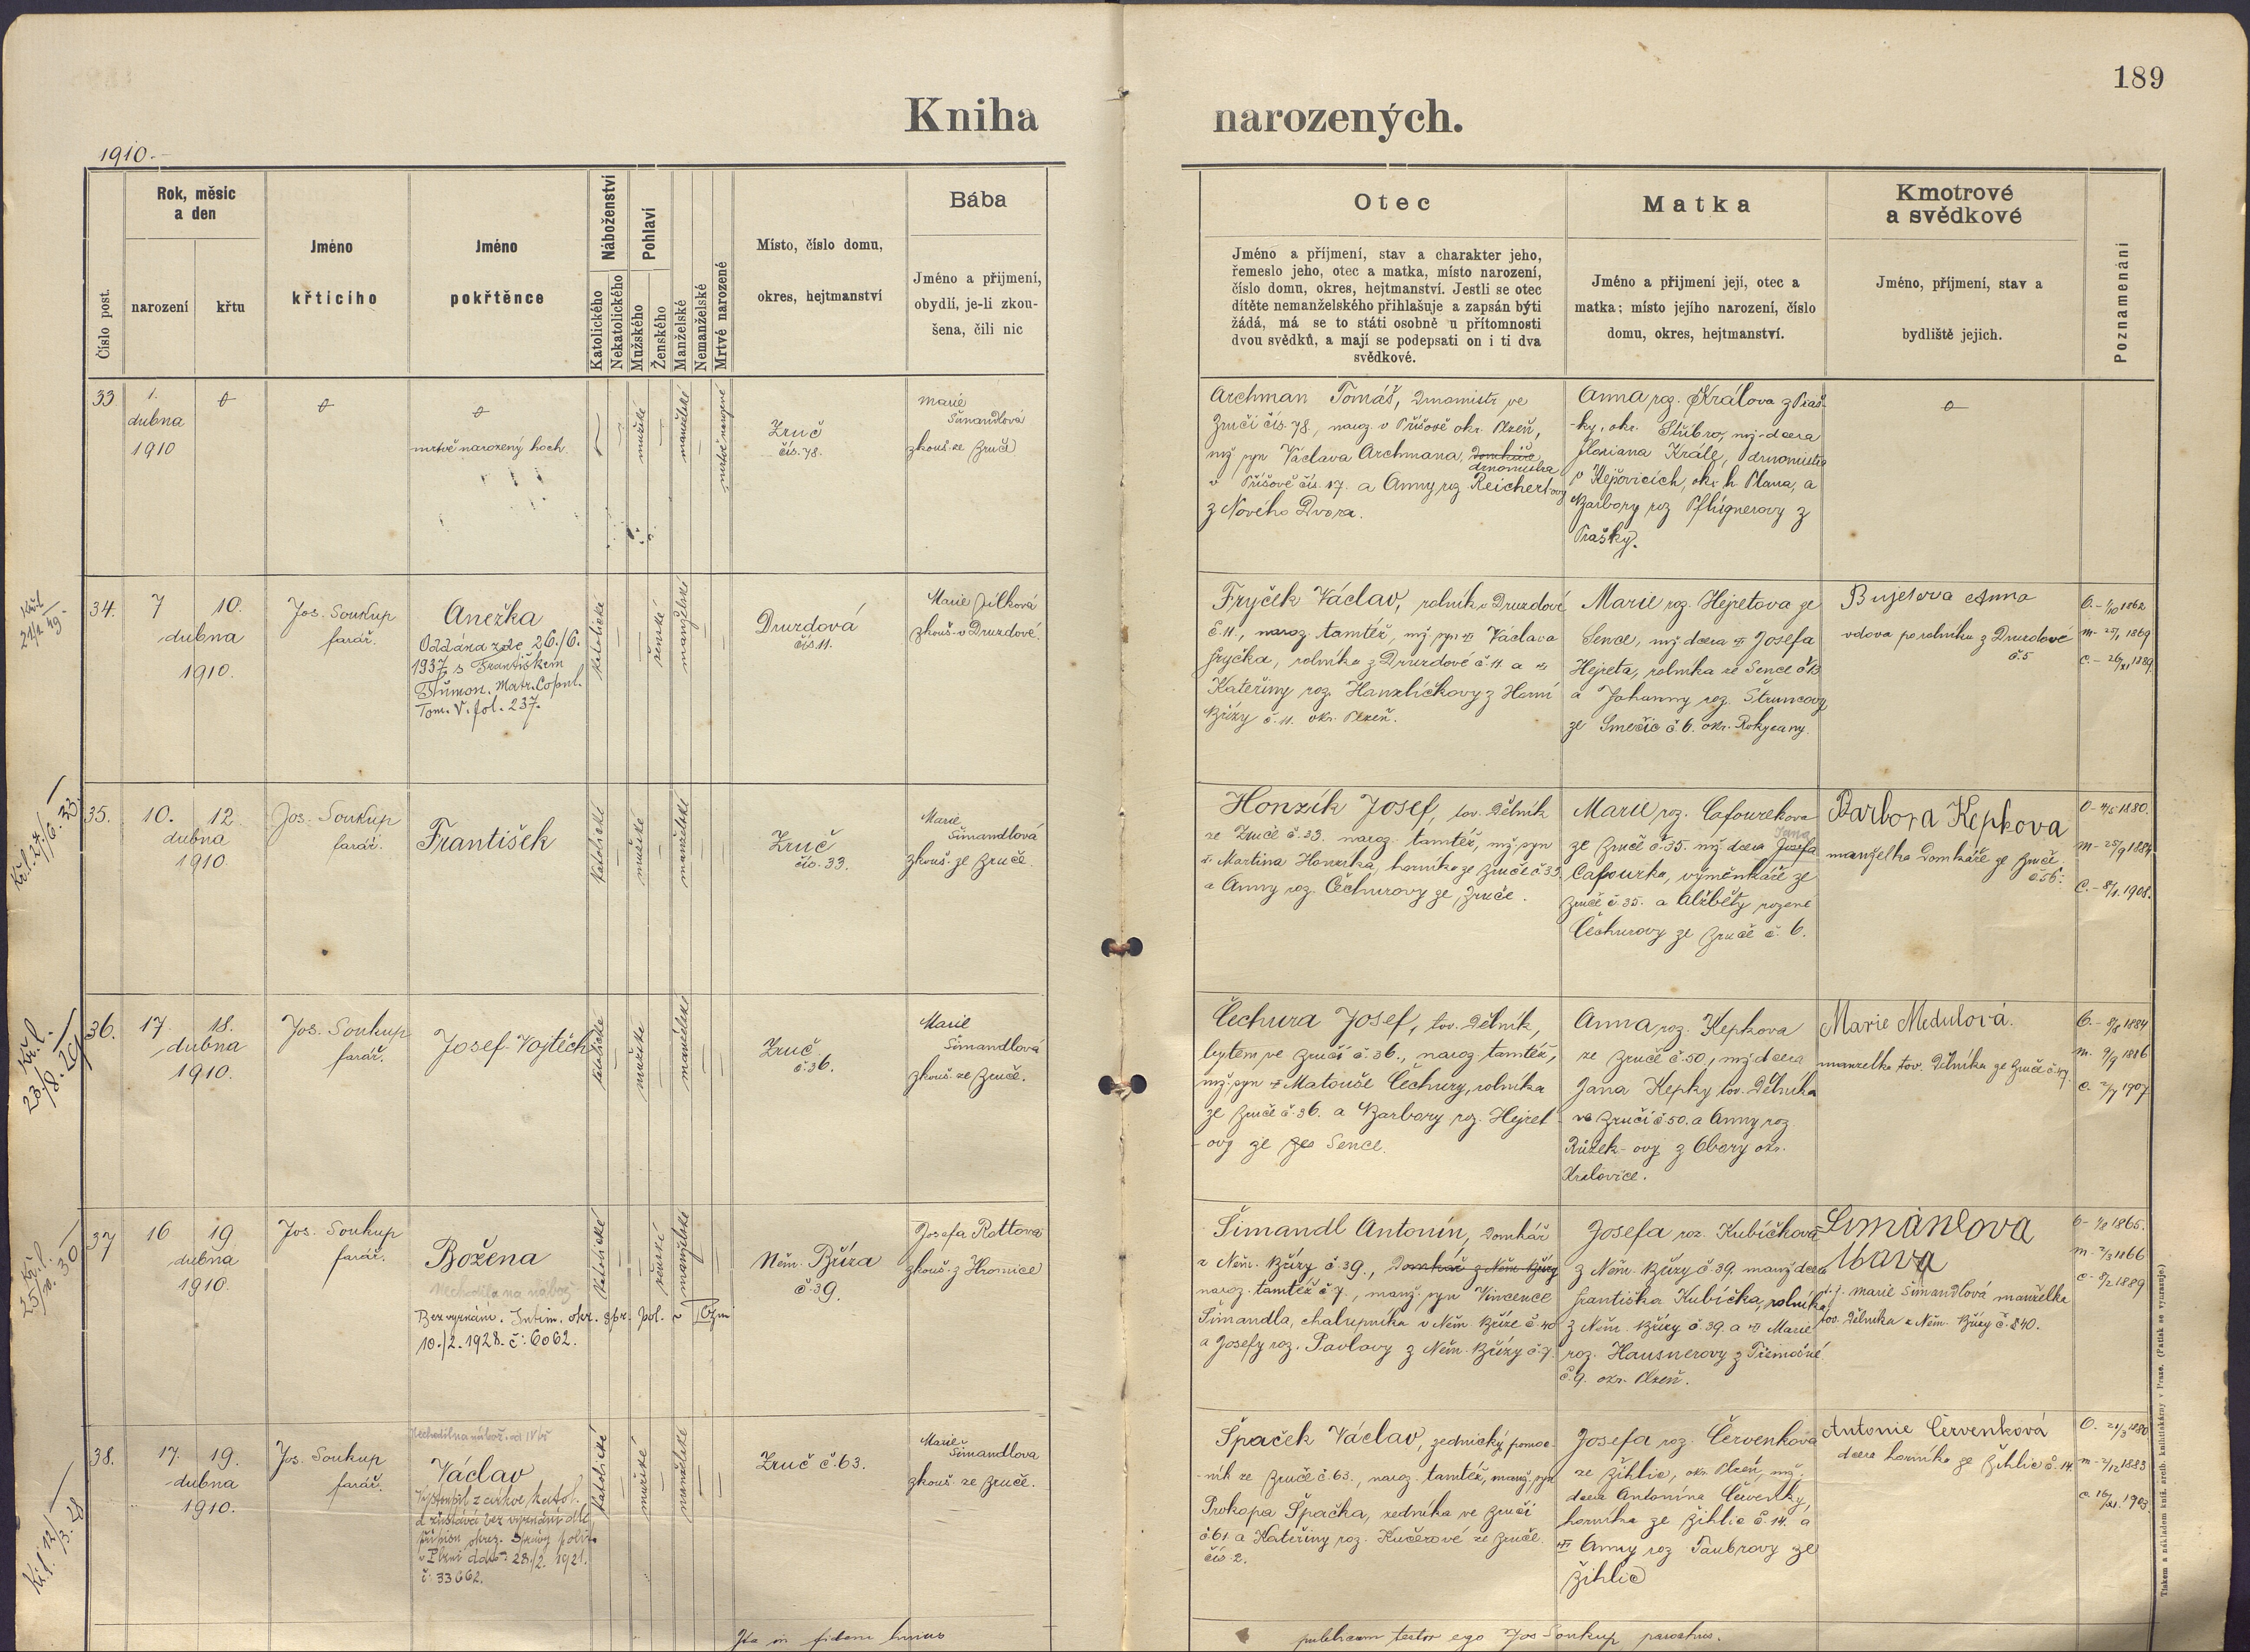 189
Kniha narozených.
1910.
Číslo post.
Rok, měsíc
a den
narození
křtu
Jméno
křtícího
Jméno
pokřtěnce
Náboženství
Katolického
Nekatolického
Pohlaví
Mužského
Ženského
Manželské
Nemanželské
Mrtvé narozené
Místo, číslo domu,
okres, hejtmanství
Bába
Jméno a přijmení,
obydlí, je-li zkou-
šena, čili nic
Otec
Jméno a příjmení, stav a charakter jeho,
řemeslo jeho, otec a matka, místo narození,
číslo domu, okres, hejtmanství. Jestli se otec
dítěte nemanželského přihlašuje a zapsán býti
žádá, má se to státi osobně u přítomnosti
dvou svědků, a mají se podepsati on i ti dva
svědkové.
Matka
Jméno a přijmení její, otec a
matka; místo jejího narození, číslo
domu, okres, hejtmanství.
Kmotrové
a svědkové
Jméno, příjmení, stav a
bydliště jejich.
Poznamenání
33
1.
dubna
1910
mrtvě narozený hoch
mužské
manželské
mrtvě narozené
Zruč
čís. 78.
Marie
Šimandlová
zkouš. ze Zruč
Archman Tomáš, drnomistr ve
Zruči čís. 78, naroz. v Příšově okr. Plzeň,
mž. syn Václava Archmana, domkáře
drnomistra
v Příšově čís. 17. a Anny roz. Reichertovy
z Nového Dvora.
Anna roz. Králova z Praš-
-ky, okr. Stříbro, mž. dcera
Floriana Krále, drnomistra
v okr. h. Plana, a
Barbory roz. Pflignerovy z
Prašky.
34.
7 10.
dubna
1910.
Jos. Soukup
farář.
Anežka
Oddána zde 26./6.
1937 s Františkem
Matr. Copul.
Tom. V. fol. 237.
katolické
ženské
manželské
Druzdová
čís. 11.
Marie Jílková
zkouš. v Druzdové.
Fryček Václav, rolník v Druzdové
č. 11., naroz. tamtéž, mž. syn Václava
Fryčka, rolníka z Druzdové č. 11 a
Kateřiny roz. Hanzlíčkovy z Horní
Břízy č. 11. okr. Plzeň.
Marie roz. Hejretova ze
Sence, mž. dcera Josefa
Hejreta, rolníka ze Sence č. 13
a Johanny roz. Štruncovy
ze Smečic č. 6. okr. Rokycany.
Anna
vdova po rolníku z Druzdové
č. 5
O. - 1/10 1862
m - 25/1 1869
C. - 26/XI 1889
35.
10. 12.
dubna
1910.
Jos. Soukup
farář.
František
katolické
mužské
manželské
Zruč
čís. 33.
Marie
Šimandlová
zkouš. ze Zruče.
Honzík Josef, tov. dělník
ze Zruče č. 33. naroz. tamtéž, mž. syn
Martina Honzíka, horníka ze Zruče č. 33
a Anny roz. Čechurovy ze Zruče.
Marie roz. Cafourkova
ze Zruče č. 35. mž. dcera Josefa
Jana
Cafourka, výměnkáře ze
Zruče č. 35. a Alžběty rozené
Čechurovy ze Zruče č. 6.
Barbora Kepkova
manželka domkáře ze Zruče
č. 56.
m - 25/9 1884
C. - 8/1. 1908.
Kř. l. 27./6. 33.
36.
17. 18.
dubna
1910.
Jos. Soukup
farář.
Josef Vojtěch
katolické
mužské
manželské
Zruč
č. 36.
Marie
Šimandlová
zkouš. ze Zruče.
Čechura Josef, tov. dělník,
bytem ve Zruči č. 36., naroz. tamtéž,
mž. syn Matouše Čechury, rolníka
ze Zruče č. 36. a Barbory roz. Hejret-
-ovy ze Sence.
Anna roz. Kepkova
ze Zruče č. 50, mž. dcera
Jana Kepky tov. dělníka
ve Zruči č. 50. a Anny roz.
Růžek-ovy z Obory okr.
Kralovice.
Marie Medulová.
manželka tov. dělníka ze Zruče č. 47.
m. 9/9 1886
C. 2/7 1907
Kř. l.
23/8. 29
37
16 19
dubna
1910.
Jos. Soukup
farář.
Božena
Nechodila na nábož.
Bez vyznání. Intim. okr. spr. pol. v Plzni
10./2. 1928. č: 6062.
Katolické
ženské
manželské
Něm. Bříza
č. 39.
Josefa Rottová
zkouš. z Hromice
Šimandl Antonín, domkář
z Něm. Břízy č. 39., domkář z Něm. Břízy
naroz. tamtéž č. 7., manž. syn Vincence
Šimandla, chalupníka v Něm. Bříze č. 40
a Josefy roz. Pavlovy z Něm. Břízy č. 7.
Josefa roz. Kubíčkova
z Něm. Břízy č. 39. manž. dcera
Františka Kubíčka, rolníka
z Něm. Břízy č. 39. a Marie
roz. Hausnerovy z Třemošné
č. 9. okr. Plzeň.
Marie Šimandlová manželka
tov. dělníka z Něm. Břízy č. 40.
m - 2/3 1866
Kř. l.
38.
17. 19.
dubna
1910.
Jos. Soukup
farář.
Václav
Vystoupil z církve katol.
a zůstává bez vyznání dle
přípisu okres. správy polit.
v Plzni ddto: 28./2. 1921.
č: 33662.
katolické
mužské
manželské
Zruč č. 63.
Marie
Šimandlova
zkouš. ze Zruče.
Špaček Václav, zednický pomoc-
-ník ze Zruče č. 63., naroz. tamtéž, manž. syn
Prokopa Špačka, zedníka ve Zruči
č. 61. a Kateřiny roz. Kučerové ze Zruče
čís. 2.
Josefa roz. Červenkova
ze Žihlic, okr. Plzeň, mž.
dcera Antonína Červenky,
horníka ze Žihlic č. 14. a
Anny roz. Taubrovy ze
Žihlic
Antonie Červenková
dcera horníka ze Žihlic č. 14.
O. 21/3 1880
m - 2/12 1883
Kř. l. 12/3. 28
Ita in fidem huius
publicam testor ego Jos Soukup parochus.
Tiskem a nákladem kníž. arcib. knihtiskárny v Praze. (Patisk se vyhrazuje.)